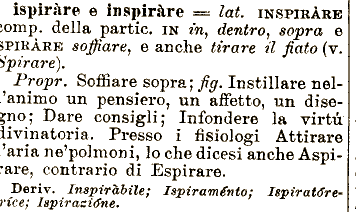 ispiràre e inspiràre = lat. INSPIRÀRE
comp. della partic. IN in, dentro, sopra e
SPIRÀRE soffiare, e anche tirare il fiato (v.
Spirare).
Propr. Soffiare sopra; fig. Instillare nel-
l'animo un pensiero, un affetto, un dise-
gno; Dare consigli; Infondere la virtú
divinatoria. Presso i fisiologi Attirare
l'aria ne'polmoni, lo che dicesi anche Aspi-
rare, contrario di Espirare.
Deriv. Inspiràbile; Ispiraménto; Ispiratóre-
rice; Ispirazióne.